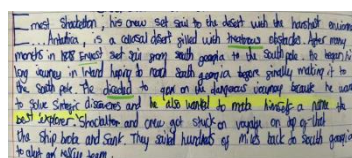 Ernest Shackleton, his crew set sail to the desert with the harshest environ
Antartica, is a colossal desert filled with treacherous obstacles. After many
months in 1808 Ernest set sail from south georgia to the south pole. He began his
long journey in inland hoping to reach South georgia before finally making it to
the south pole. He decided to goon on the dangerous voyage because he want
to solve sintegic discoveries and he also wanted to make himself a name the
best explorer. Shackleton and crew got stuck on voyage on ap of that
the ship broke and sank. They sailed hundreds of miles back to south georgia
to alert an rescue team.